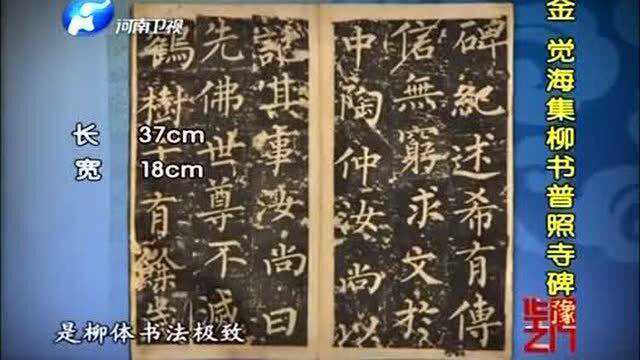 河南卫视
金 觉海集柳书普照寺碑
豫
长 37cm
宽 18cm
碑紀述希有傳
信無窮求文於
中陶仲汝尚以
記其事汝尚曰
先佛世尊不滅
鶴樹千有餘
是柳体书法极致